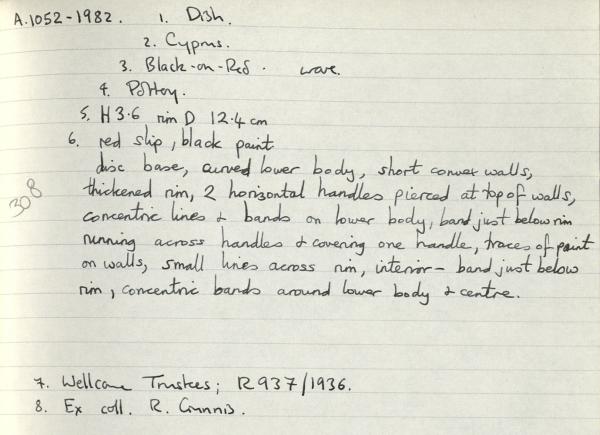 A.1052-1982. 1. Dish.
2. Cyprus.
3. Black-on-Red. ware.
4. Pottery.
5. H 3.6 rim D 12.4 cm
6. red slip, black paint
disc base, curved lower body, short convex walls,
thickened rim, 2 horizontal handles pierced at top of walls,
308
concentric lines & bands on lower body, band just below rim
running across handles & covering one handle, traces of paint
on walls, small lines across rim, interior - band just below
rim, concentric bands around lower body & centre.
7. Wellcome Trustees; R937/1936.
8. Ex coll. R. Gunnis.